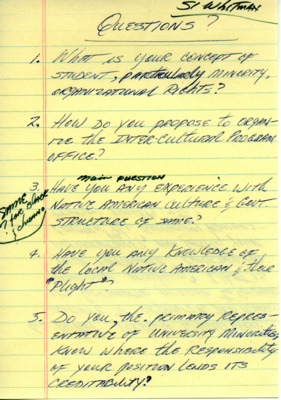 SI WHITMAN
QUESTIONS?
1. WHAT IS YOUR CONCEPT OF
STUDENT, PARTICULARLY MINORITY,
ORGANIZATIONAL RIGHTS?
2. HOW DO YOU PROPOSE TO ORGAN-
IZE THE INTER-CULTURAL PROGRAM
OFFICE?
MAIN QUESTION
3. HAVE YOU ANY EXPERIENCE WITH
NATIVE AMERICAN CULTURE & GOVT
STRUCTURE OF SAME?
SAME
? FOR BLACK
& CHICANO
4. HAVE YOU ANY KNOWLEDGE OF
THE LOCAL NATIVE AMERICAN & THEIR
"PLIGHT"?
5. DO YOU, THE PRIMARY REPRES-
ENTATIVE OF UNIVERSITY MINORITIES,
KNOW WHERE THE RESPONSIBILITY
OF YOUR POSITION LENDS ITS
CREDITABILITY?